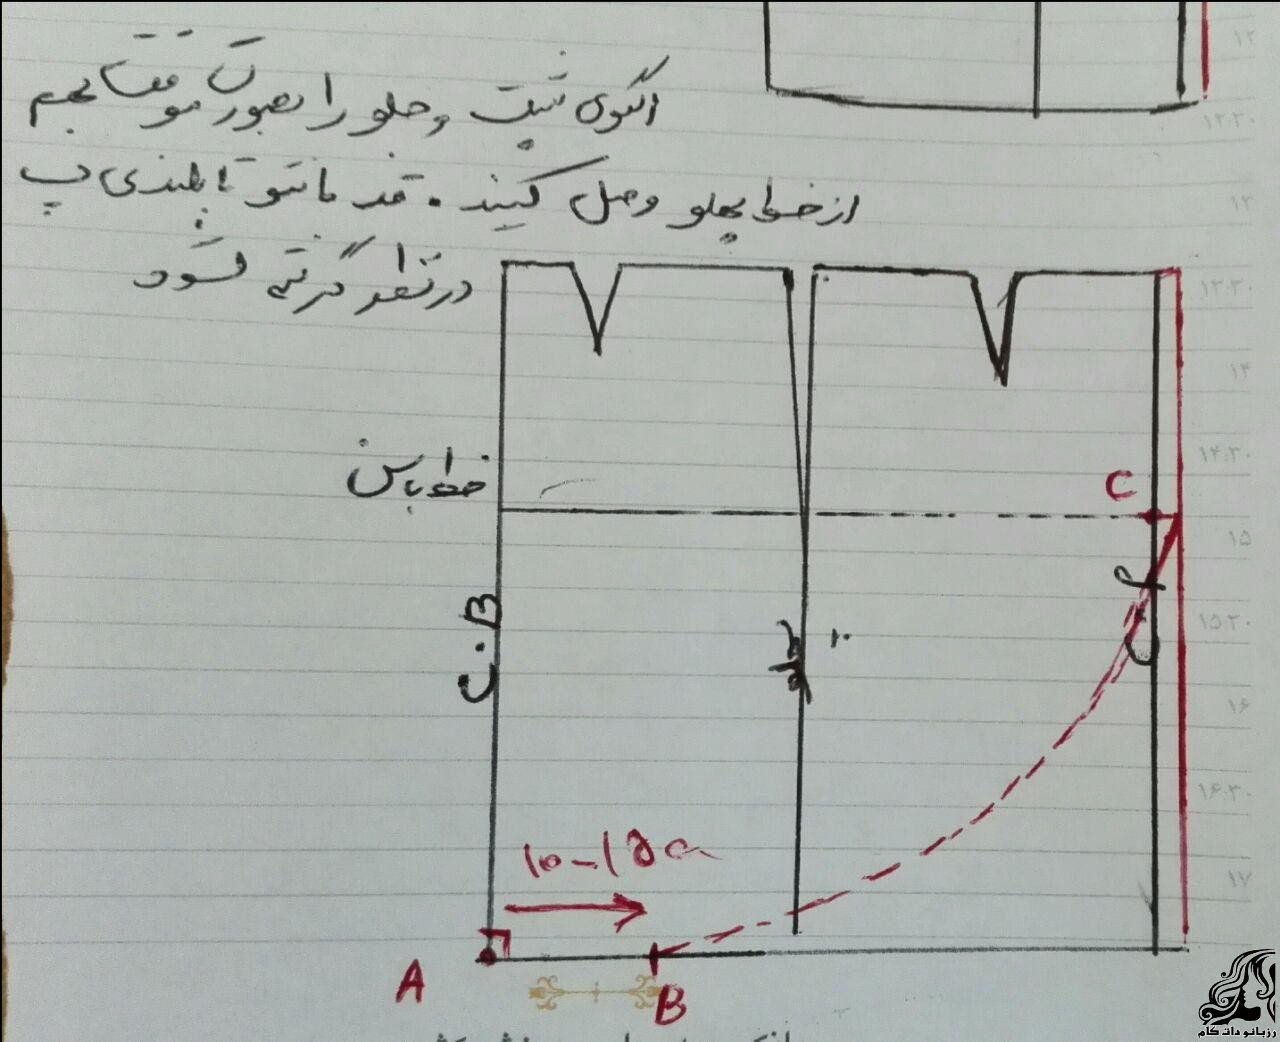 الگوی پشت و جلو را بصورت موقت بهم
از خط پهلو وصل کنید . قد مانتو تا بلندی پ
در نظر گرفته شود
خط باسن
C
C.B
پهلو
۱۰-۱۵
A
B
۱۲
۱۲:۳۰
۱۳
۱۳:۳۰
۱۴
۱۴:۳۰
۱۵
۱۵:۳۰
۱۶
۱۶:۳۰
۱۷
رزبانو دات کام